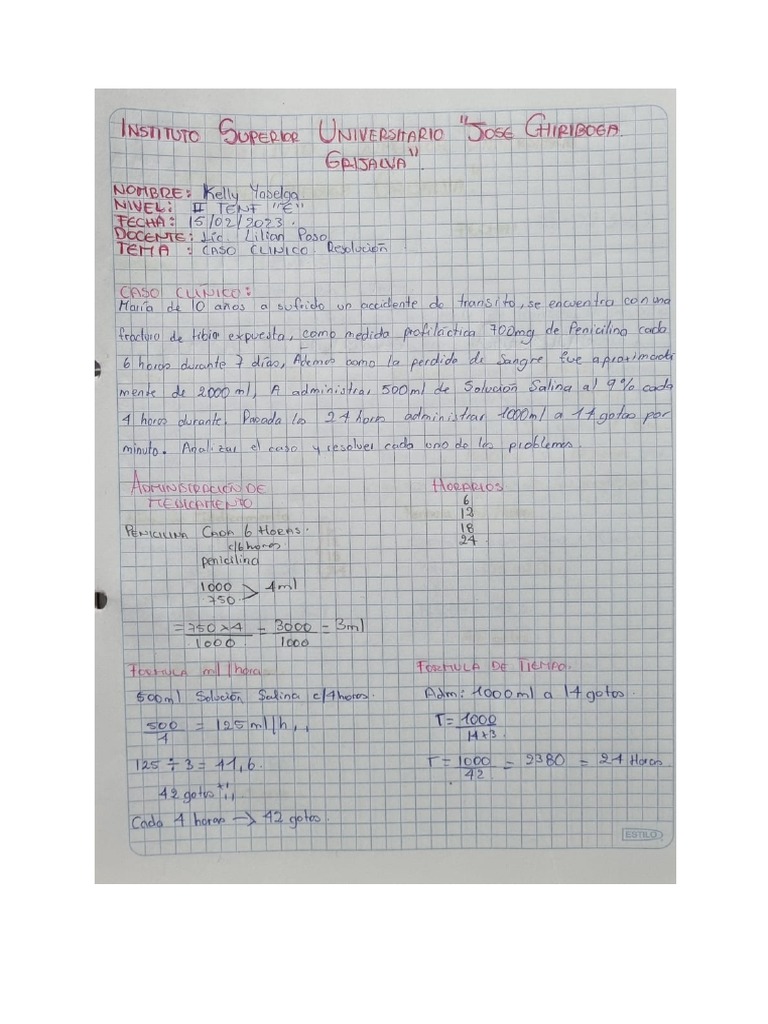 INSTITUTO SUPERIOR UNIVERSITARIO "JOSE CHIRIBOGA
GRIJALVA".
NOMBRE: Kelly Yaselga
NIVEL: II TENF "E"
FECHA: 15/02/2023.
DOCENTE: Lic. Lilian Poso
TEMA : CASO CLINICO Resolución
CASO CLÍNICO:
María de 10 años a sufrido un accidente de transito, se encuentra con una
fractura de tibia expuesta, como medida profiláctica 700mg de Penicilina cada
6 horas durante 7 días, Ademas como la perdida de Sangre fue aproximada
mente de 2000ml, A administrar 500ml de Solución Salina al 9% cada
4 horas durante. Pasada las 24 horas administrar 1000ml a 14 gotas por
minuto. Analizar el caso y resolver cada uno de los problemas.
ADMINISTRACIÓN DE
MEDICAMENTO
HORARIOS
6
12
18
24
PENICILINA CADA 6 HORAS.
c/6 horas
penicilina
1000 > 4ml
750
= 750 x 4 / 1000 = 3000 / 1000 = 3ml
FORMULA ml/hora
500ml Solución Salina c/4 horas.
500 / 4 = 125 ml/h,,
125 ÷ 3 = 41,6.
42 gotas
Cada 4 horas → 42 gotas.
FORMULA DE TIEMPO.
Adm: 1000ml a 14 gotas.
T = 1000 / 14x3
T = 1000 / 42 = 2380 = 24 Horas
ESTILO